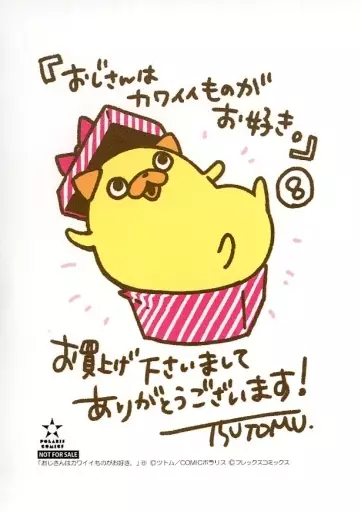 『おじさんは
カワイイものが
お好き。』
⑧
お買上げ下さいまして
ありがとうございます!
TSUTOMU.
POLARIS
COMICS
NOT FOR SALE
「おじさんはカワイイものがお好き。」⑧ ©ツトム／COMICポラリス ©フレックスコミックス